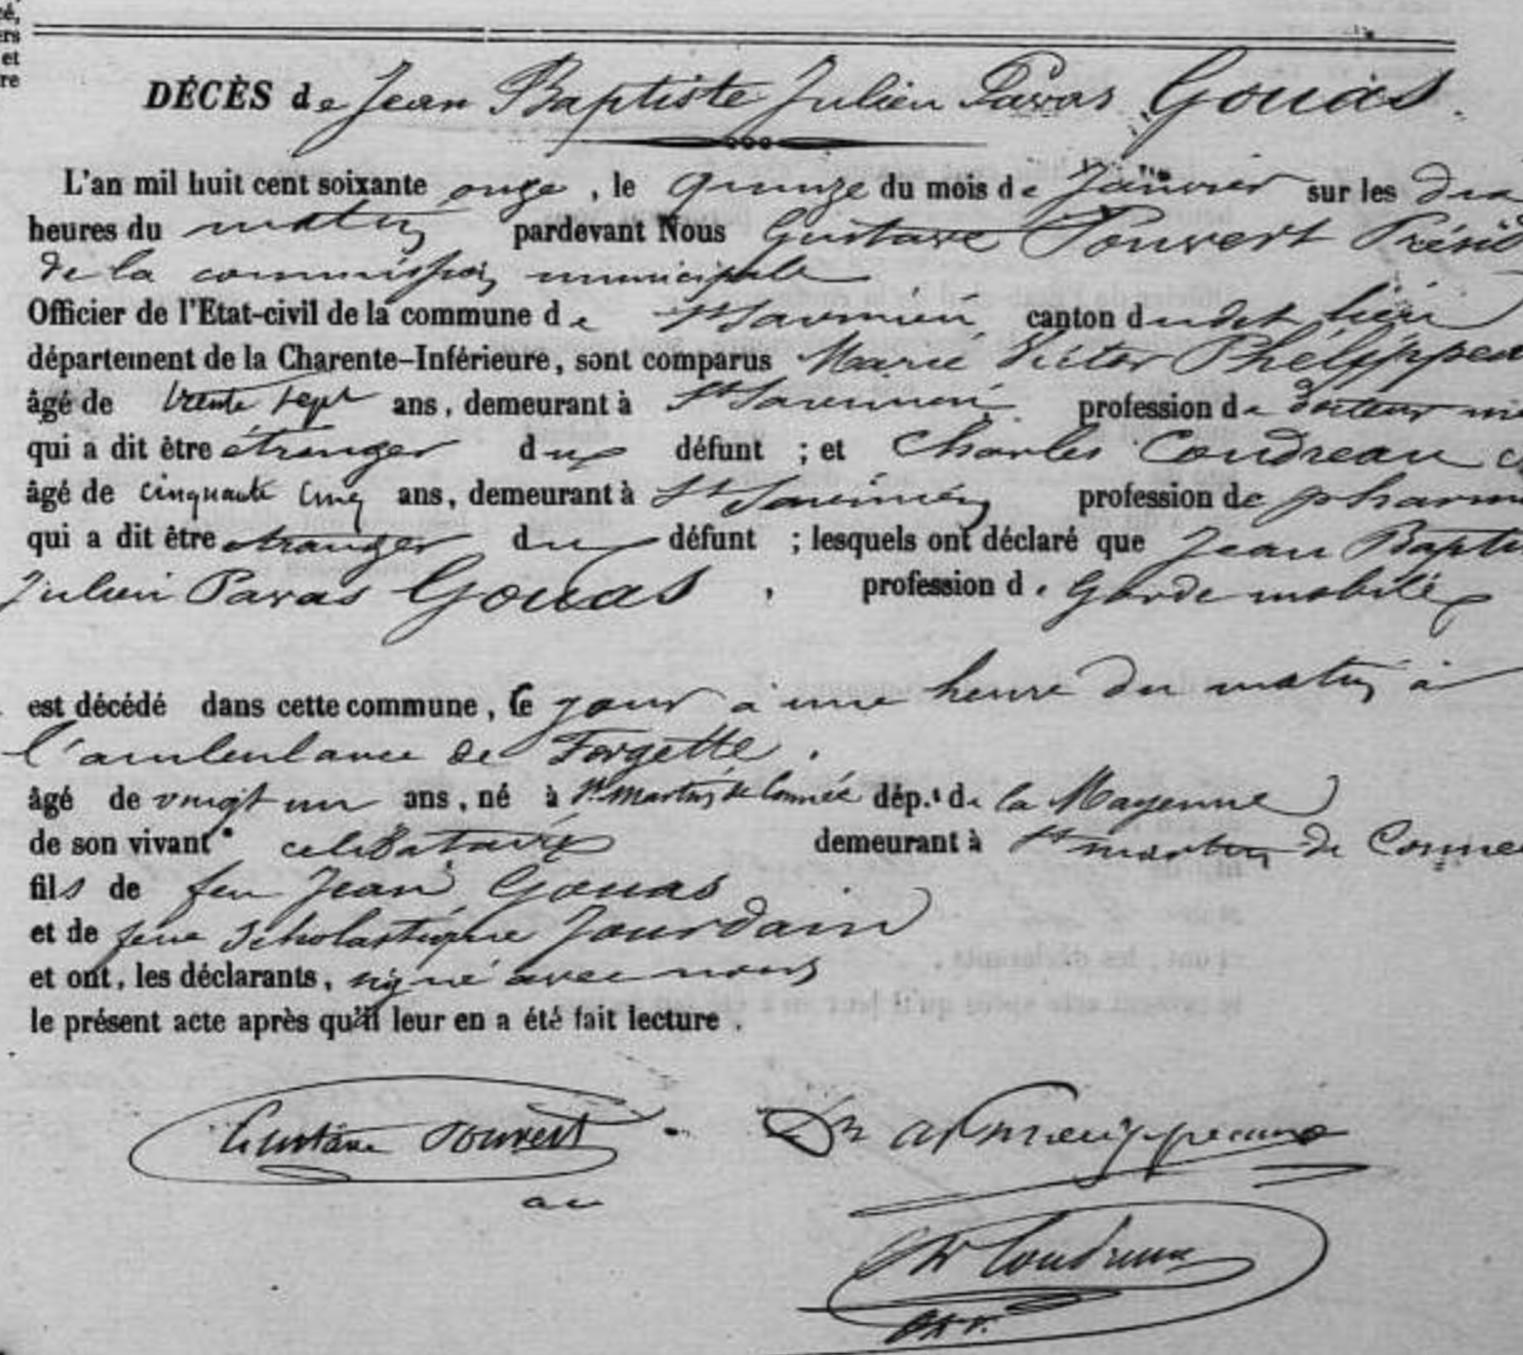 cé,
ers
et
re
DÉCÈS de Jean Baptiste Julien Pavas Gouas.
L'an mil huit cent soixante onze, le quinze du mois de Janvier sur les dix
heures du matin pardevant Nous Gustave Pouvert Présid
de la commission municipale
Officier de l'Etat-civil de la commune de St Savinien canton dudit lieu
département de la Charente-Inférieure, sont comparus Marie Victor Phelippea
âgé de trente sept ans, demeurant à St Savinien profession de docteur mé
qui a dit être étranger du défunt ; et Charles Coudreau
âgé de cinquante cinq ans, demeurant à St Savinien profession de pharm
qui a dit être étranger du défunt ; lesquels ont déclaré que Jean Bapti
Julien Pavas Gouas, profession de Garde mobile
est décédé dans cette commune, ce jour à une heure du matin à
l'ambulance de Forgette.
âgé de vingt un ans, né à St Martin de Connée dép.t de la Mayenne
de son vivant célibataire demeurant à St Martin de Connée
fils de feu Jean Gouas
et de feue Scholastique Jourdain
et ont, les déclarants, signé avec nous
le présent acte après qu'il leur en a été fait lecture.
Gustave Pouvert
Ch Coudreau